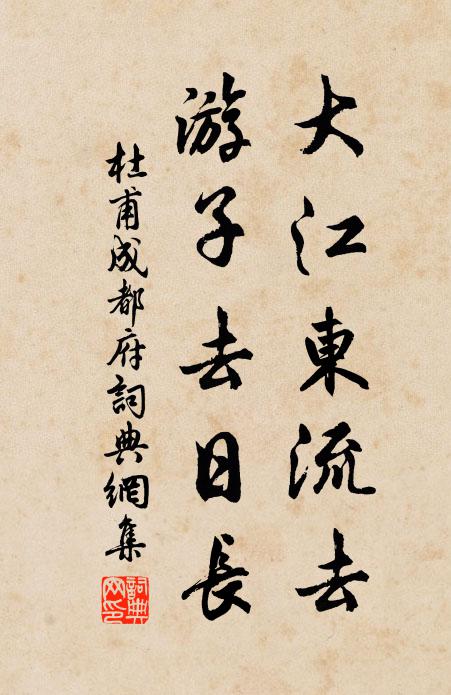 大江東流去
游子去日長
杜甫成都府詞典網集
詞典網印